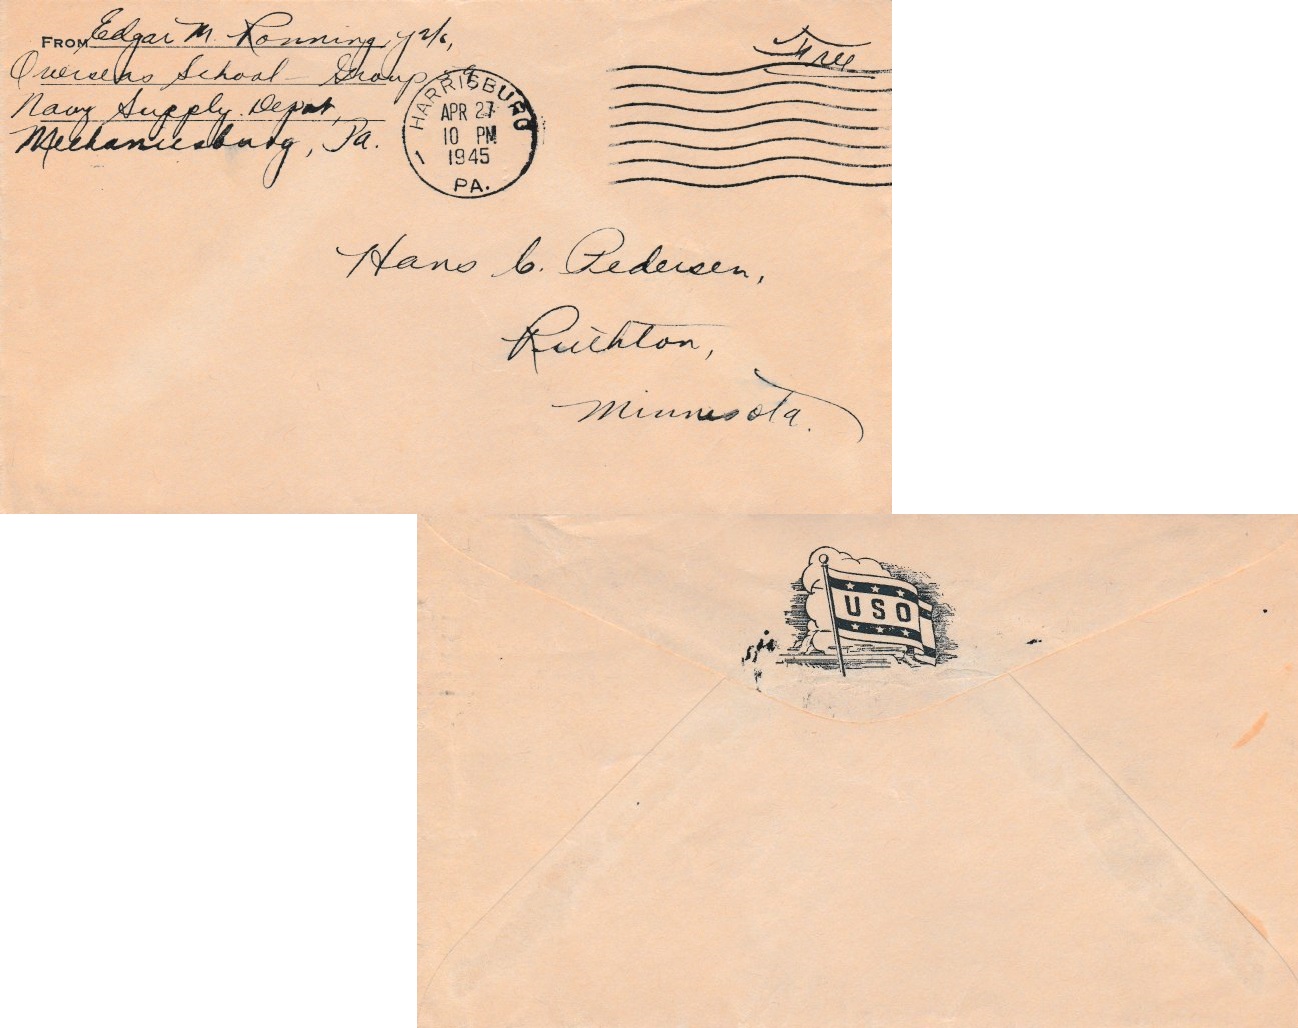 FROM Edgar M. Ronning, Y2/c,
Overseas School - Group
Navy Supply Depot,
Mechanicsburg, Pa.
HARRISBURG
APR 27
10 PM
1945
1
PA.
Free
Hans C. Pedersen,
Ruthton,
Minnesota.
USO